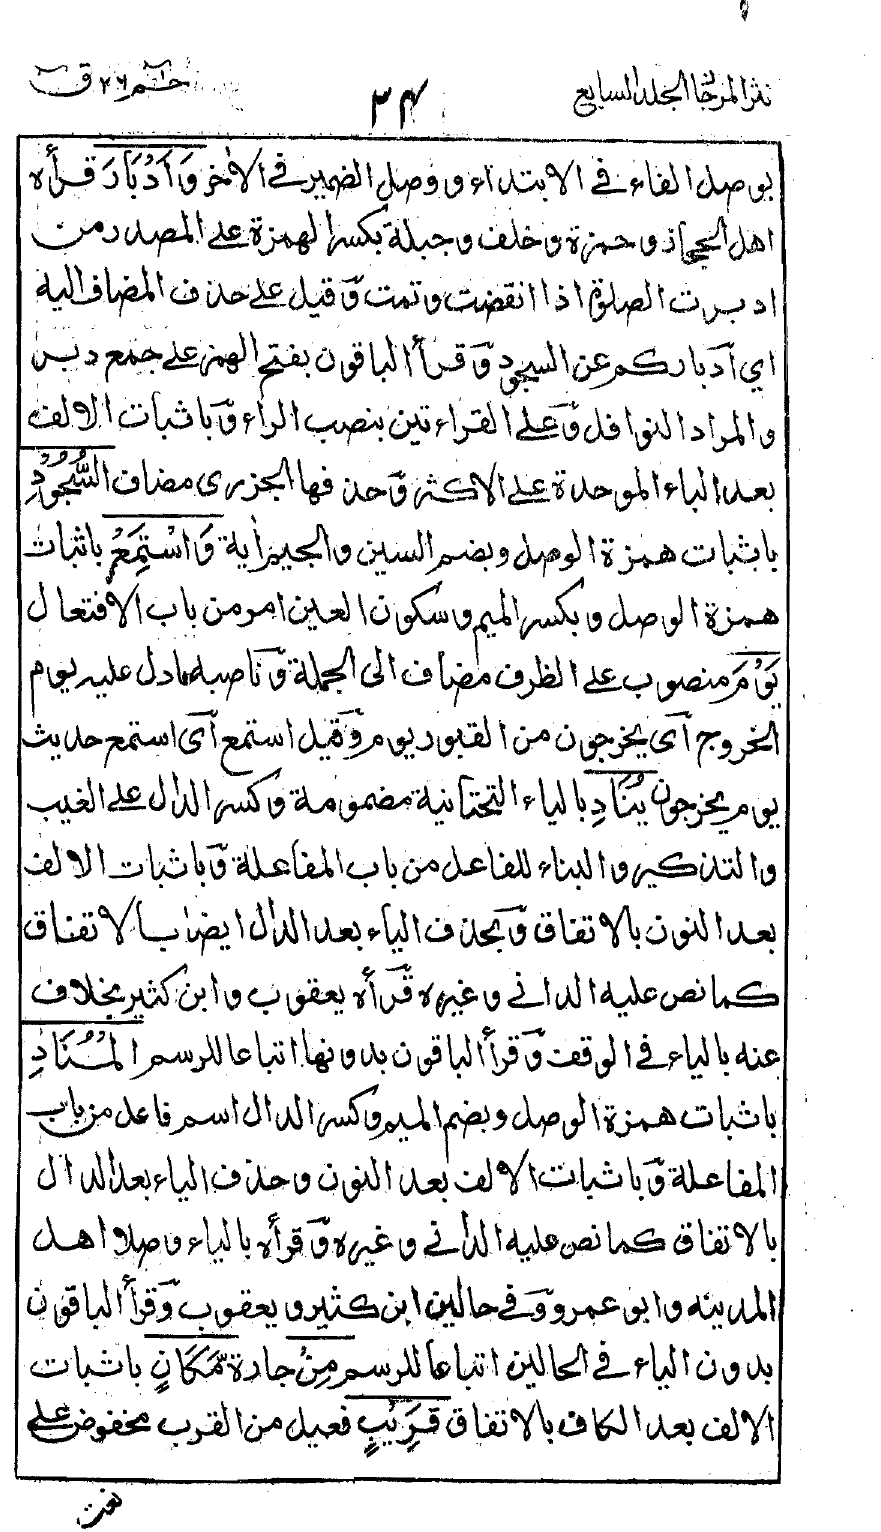 نثر المرجان المجلد السابع
٢٤
حٰـم ٢٦ ق
بوصل الفاء في الابتداء ووصل الضمير في الاٰخر وَاَدْبَارَ قرأه
اهل الحجاز وحمزة وخلف وجبلة بكسر الهمزة على المصدر من
ادبرت الصلوٰة اذا انقضت وتمت وقيل على حذف المضاف اليه
اي ادباركم عن السجود وقرأ الباقون بفتح الهمز على جمع دبر
والمراد النوافل وعلى القراءتين بنصب الراء وباثبات الالف
بعد الباء الموحدة على الاكثر وحذفها الجزرى مضاف السُّجُوْدِ
باثبات همزة الوصل وبضم السين والجيم اٰية وَاسْتَمِعْ باثبات
همزة الوصل وبكسر الميم وسكون العين امر من باب الافتعال
يَوْمَ منصوب على الظرف مضاف الى الجملة وناصبه مادل عليه يوم
الخروج اى يخرجون من القبور يوم وقيل استمع اى استمع حديث
يوم يخرجون يُنَادِ بالياء التحتانية مضمومة وكسر الدال على الغيب
والتذكير والبناء للفاعل من باب المفاعلة وباثبات الالف
بعد النون بالاتفاق وبحذف الياء بعد الدال ايضا بالاتفاق
كما نص عليه الدانى وغيره قرأه يعقوب وابن كثير بخلاف
عنه بالياء في الوقف وقرأ الباقون بدونها اتباعا للرسم الْمُنَادِ
باثبات همزة الوصل وبضم الميم وكسر الدال اسم فاعل من باب
المفاعلة وباثبات الالف بعد النون وحذف الياء بعد الدال
بالاتفاق كما نص عليه الدانى وغيره وقرأه بالياء وصلا اهل
المدينه وابو عمرو وفي حالين ابن كثير ويعقوب وقرأ الباقون
بدون الياء في الحالين اتباعا للرسم مِنْ جارة مَّكَانٍ باثبات
الالف بعد الكاف بالاتفاق قَرِيْبٍ فعيل من القرب مخفوض على
نعت